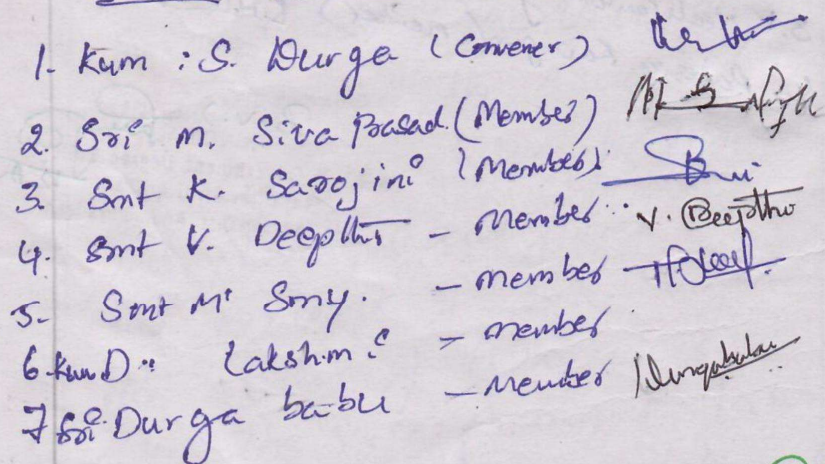 1. Kum : S. Durga (Convener)
2. Sri M. Siva Prasad (Member)
3. Smt K. Sarojini (Member)
4. Smt V. Deepthi - Member V. Deepthi
5- Smt M. Sony. - member
6. Kum D. Lakshmi - member
7 Sri Durga babu - Member Durgababu